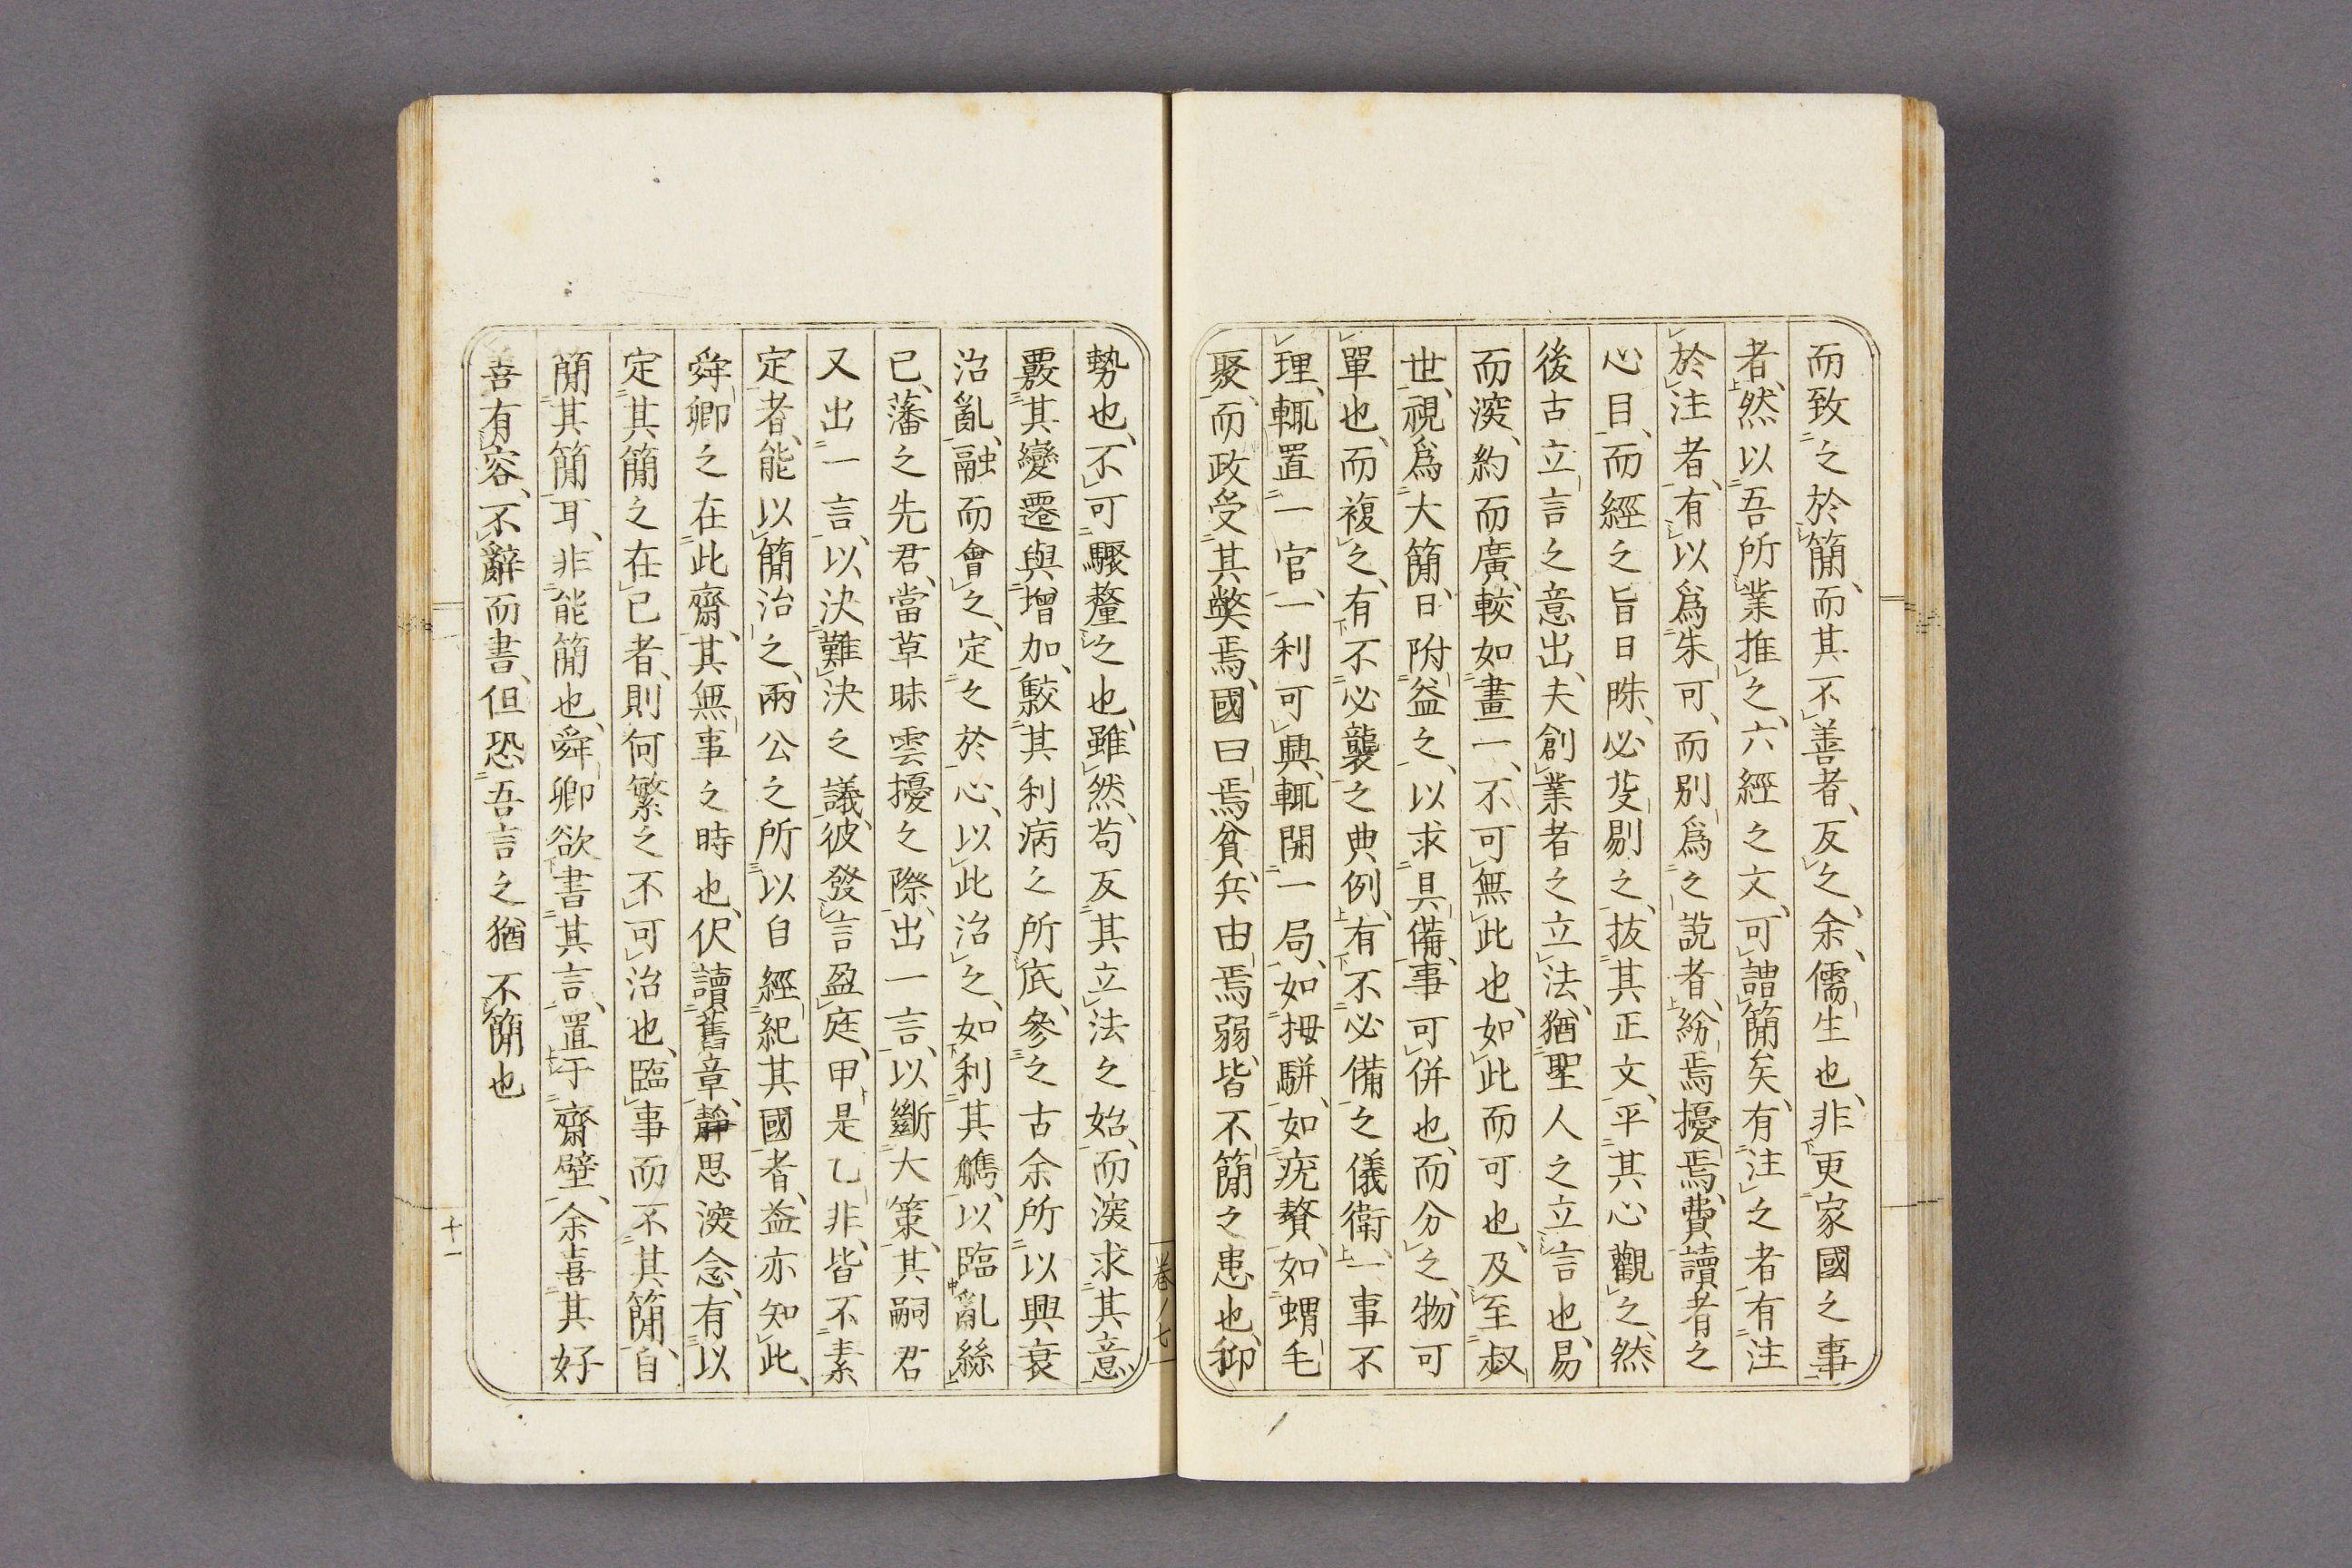 而致之於簡、而其不善者、反之、余、儒生也、非更家國之事
者、然以吾所業推之、六經之文、可謂簡矣、有注之者、有注
於注者、有以爲朱可、而別爲之說者、紛焉擾焉、費讀者之
心目、而經之旨日昧、必芟剔之、抜其正文、平其心觀之、然
後古立言之意出、夫創業者之立法、猶聖人之立言也、易
而深、約而廣、較如畫一、不可無此也、如此而可也、及至叔
世、視爲大簡、日附益之、以求具備、事可併也、而分之、物可
單也、而複之、有不必襲之典例、有不必備之儀衛、一事不
理、輒置一官、一利可興、輒開一局、如拇駢、如疣贅、如蝟毛
聚、而政受其獘焉、國曰焉貧、兵由焉弱、皆不簡之患也、抑
勢也、不可驟釐之也、雖然、苟反其立法之始、而深求其意
覈其變遷與增加、鮫其利病之所底、參之古余所以興衰
治亂、融而會之、定之於心、以此治之、如利其觿、以臨亂絲
已、藩之先君、當草昧雲擾之際、出一言、以斷大策、其嗣君
又出一言、以決難決之議、彼發言盈庭、甲是乙非、皆不素
定者、能以簡治之、兩公之所以自經紀其國者、益亦知此、
舜卿之在此齋、其無事之時也、伏讀舊章、靜思深念、有以
定其簡之在己者、則何繁之不可治也、臨事而不其簡、自
簡其簡耳、非能簡也、舜卿欲書其言、置于齋壁、余喜其好
善有容、不辭而書、但恐吾言之猶不簡也
卷ノ七
十一